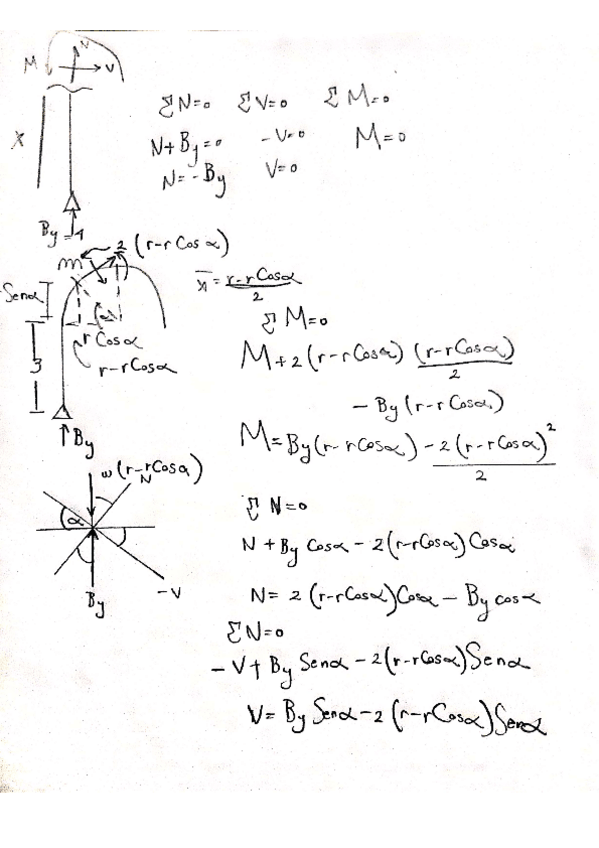 N
M V
ΣN=0 ΣV=0 ΣM=0
X
N+By=0 -V=0 M=0
N=-By V=0
By=4
2(r-rCosα)
m
x̄=r-rCosα/2
Senα
ΣM=0
rCosα
r-rCosα
3
M+2(r-rCosα)(r-rCosα)/2
-By(r-rCosα)
By
M=By(r-rCosα)-2(r-rCosα)²/2
ω(r-rCosα)
N
ΣN=0
α
N+ByCosα-2(r-rCosα)Cosα
By
-V
N=2(r-rCosα)Cosα-Bycosα
ΣN=0
-V+BySenα-2(r-rCosα)Senα
V=BySenα-2(r-rCosα)Senα